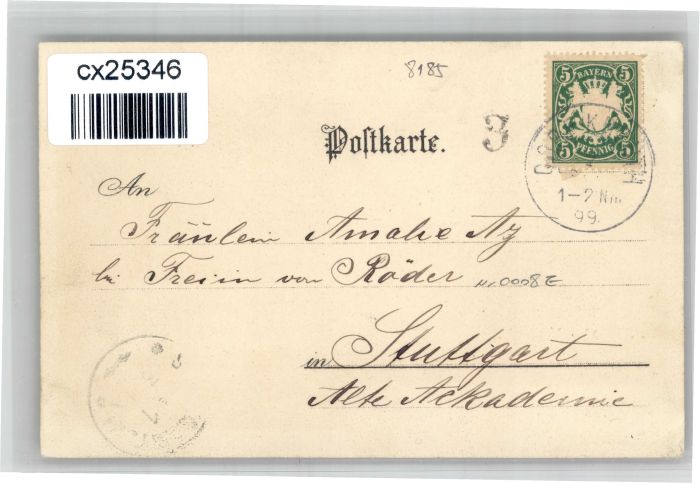 cx25346
8185
5 BAYERN 5
5 PFENNIG 5
3
Postkarte.
1-2 Nm.
99.
An
Fräulein Amalie Az
bei Freiin von Röder
in Stuttgart
Alte Ackademie